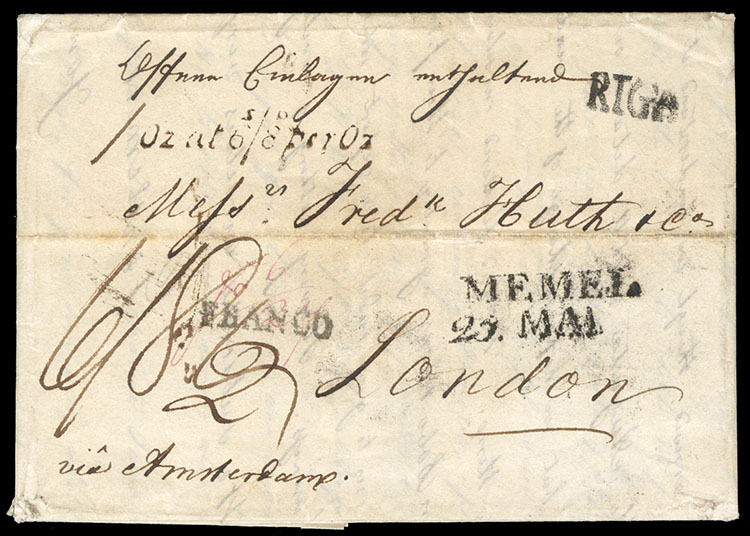 Offene Einlagen enthaltend
RIGA
1 Oz at 6/8 per Oz
s D
Messrs. Fredk Huth & Co
FRANCO
MEMEL
25. MAI
London
viâ Amsterdam.